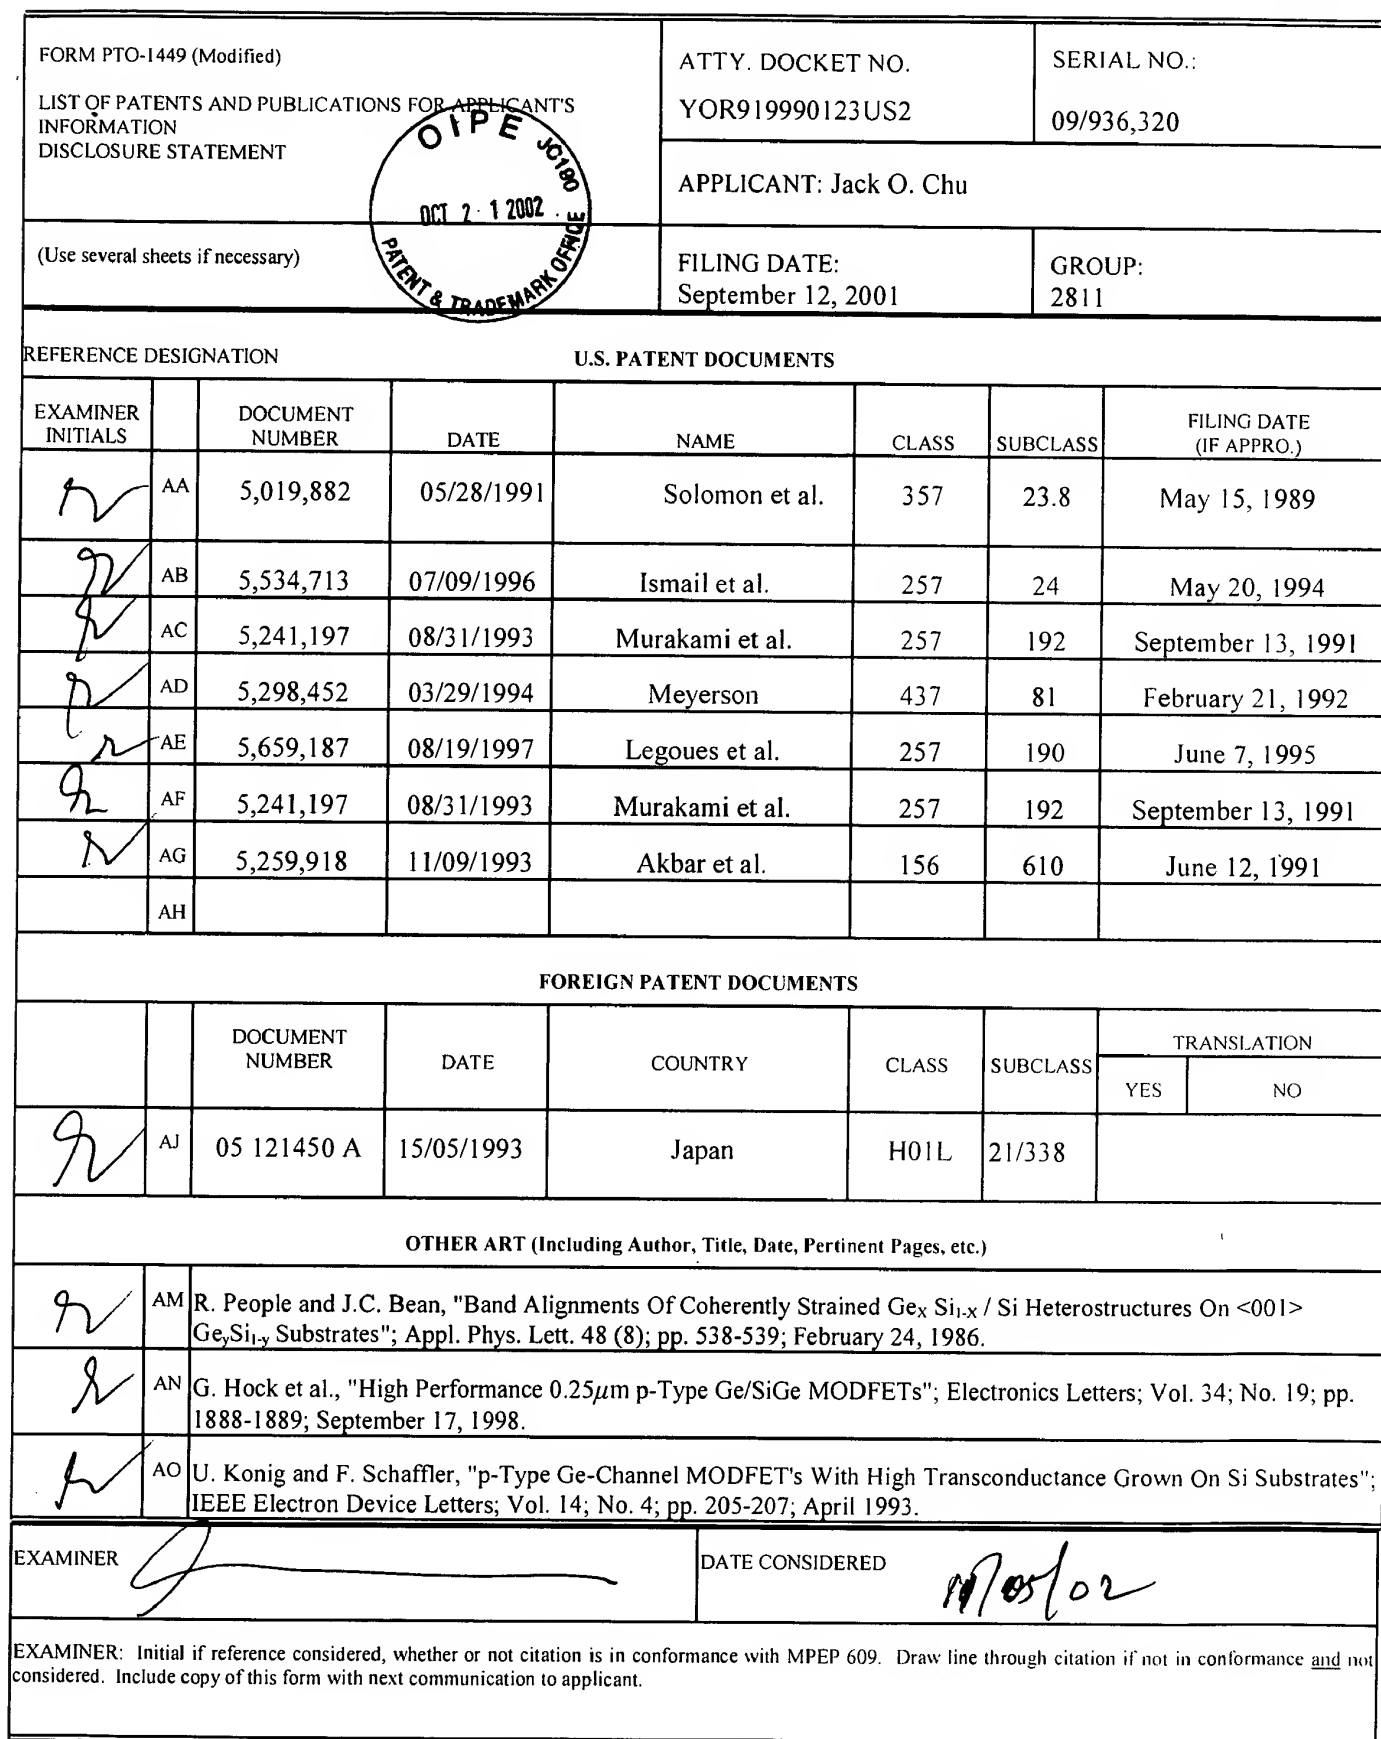 FORM PTO-1449 (Modified)
LIST OF PATENTS AND PUBLICATIONS FOR APPLICANT'S
INFORMATION
DISCLOSURE STATEMENT
(Use several sheets if necessary)
OIPE JC190
OCT 21 2002
PATENT & TRADEMARK OFFICE
ATTY. DOCKET NO.
YOR919990123US2
SERIAL NO.:
09/936,320
APPLICANT: Jack O. Chu
FILING DATE:
September 12, 2001
GROUP:
2811
REFERENCE DESIGNATION U.S. PATENT DOCUMENTS
EXAMINER INITIALS DOCUMENT NUMBER DATE NAME CLASS SUBCLASS FILING DATE (IF APPRO.)
AA 5,019,882 05/28/1991 Solomon et al. 357 23.8 May 15, 1989
AB 5,534,713 07/09/1996 Ismail et al. 257 24 May 20, 1994
AC 5,241,197 08/31/1993 Murakami et al. 257 192 September 13, 1991
AD 5,298,452 03/29/1994 Meyerson 437 81 February 21, 1992
AE 5,659,187 08/19/1997 Legoues et al. 257 190 June 7, 1995
AF 5,241,197 08/31/1993 Murakami et al. 257 192 September 13, 1991
AG 5,259,918 11/09/1993 Akbar et al. 156 610 June 12, 1991
AH
FOREIGN PATENT DOCUMENTS
DOCUMENT NUMBER DATE COUNTRY CLASS SUBCLASS TRANSLATION
YES NO
AJ 05 121450 A 15/05/1993 Japan H01L 21/338
OTHER ART (Including Author, Title, Date, Pertinent Pages, etc.)
AM R. People and J.C. Bean, "Band Alignments Of Coherently Strained GeX Si1-X / Si Heterostructures On <001>
GeySi1-y Substrates"; Appl. Phys. Lett. 48 (8); pp. 538-539; February 24, 1986.
AN G. Hock et al., "High Performance 0.25μm p-Type Ge/SiGe MODFETs"; Electronics Letters; Vol. 34; No. 19; pp.
1888-1889; September 17, 1998.
AO U. Konig and F. Schaffler, "p-Type Ge-Channel MODFET's With High Transconductance Grown On Si Substrates";
IEEE Electron Device Letters; Vol. 14; No. 4; pp. 205-207; April 1993.
EXAMINER DATE CONSIDERED
EXAMINER: Initial if reference considered, whether or not citation is in conformance with MPEP 609. Draw line through citation if not in conformance and not
considered. Include copy of this form with next communication to applicant.